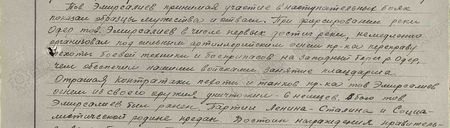 Тов. Эмирсалиев принимая участие в наступательных боях
показал образцы мужества и отваги. При форсировании реки
Одер тов. Эмирсалиев в числе первых достиг реки, немедленно
организовал под сильным артиллерийским огнем пр-ка переправу
пехоты боевой техники и боеприпасов на западный берег р. Одер,
чем обеспечил нашими войсками занятие плацдарма.
Отражая контратаки пехоты и танков пр-ка тов Эмирсалиев
огнем из своего оружия уничтожил 6 немцев. В бою тов.
Эмирсалиев был ранен. Партии Ленина-Сталина и Социа-
листической родине предан. Достоин награждения правитель-